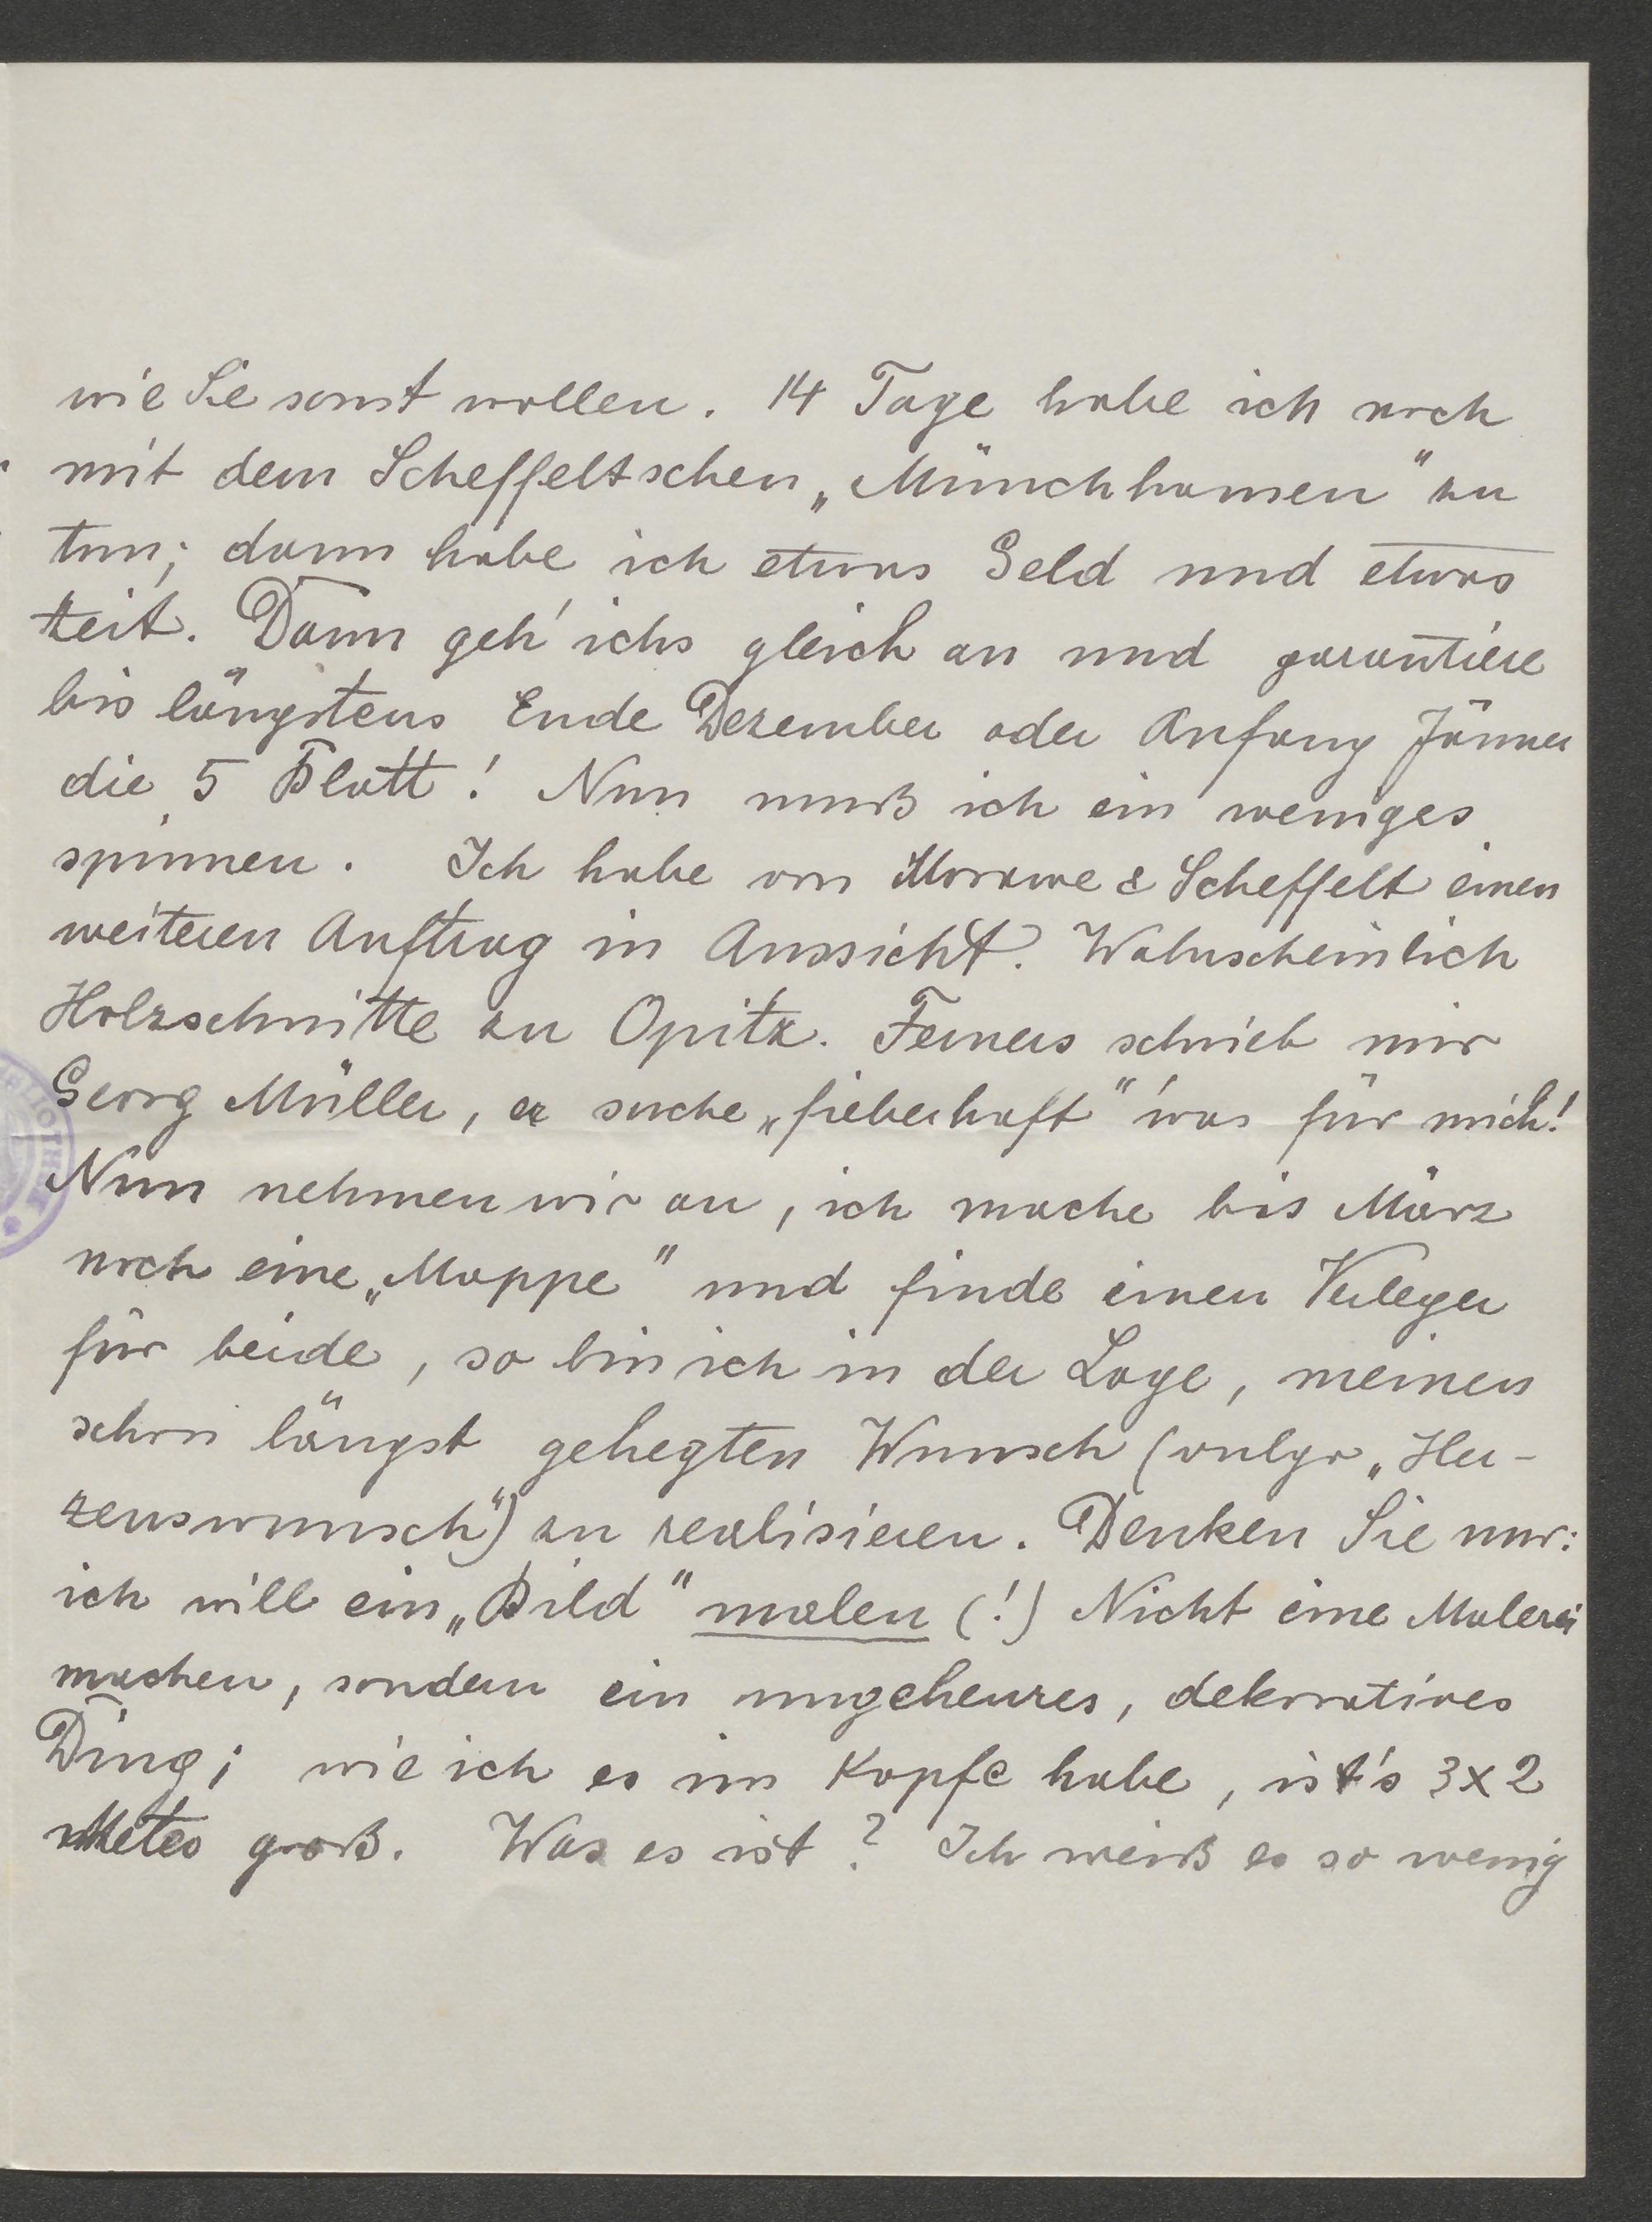 wie Sie sonst wollen. 14 Tage habe ich noch
mit dem Scheffeltschen „Münchhausen“ zu
tun; dann habe ich etwas Geld und etwas
Zeit. Dann geh' ichs gleich an und garantiere
bis längstens Ende Dezember oder Anfang Jänner
die 5 Blatt! Nun muß ich ein weniges
spinnen. Ich habe von Morawe & Scheffelt einen
weiteren Auftrag in Aussicht. Wahrscheinlich
Holzschnitte zu Opitz. Ferners schrieb mir
Georg Müller, er suche „fieberhaft“ was für mich!
Nun nehmen wir an, ich mache bis März
noch eine „Mappe“ und finde einen Verleger
für beide, so bin ich in der Lage, meinen
schon längst gehegten Wunsch (vulgo „Her-
zenswunsch“) zu realisieren. Denken Sie nur:
ich will ein „Bild“ malen (!) Nicht eine Malerei
machen, sondern ein ungeheures, dekoratives
Ding; wie ich es im Kopfe habe, ist's 3x2
Meter groß. Was es ist? Ich weiß es so wenig